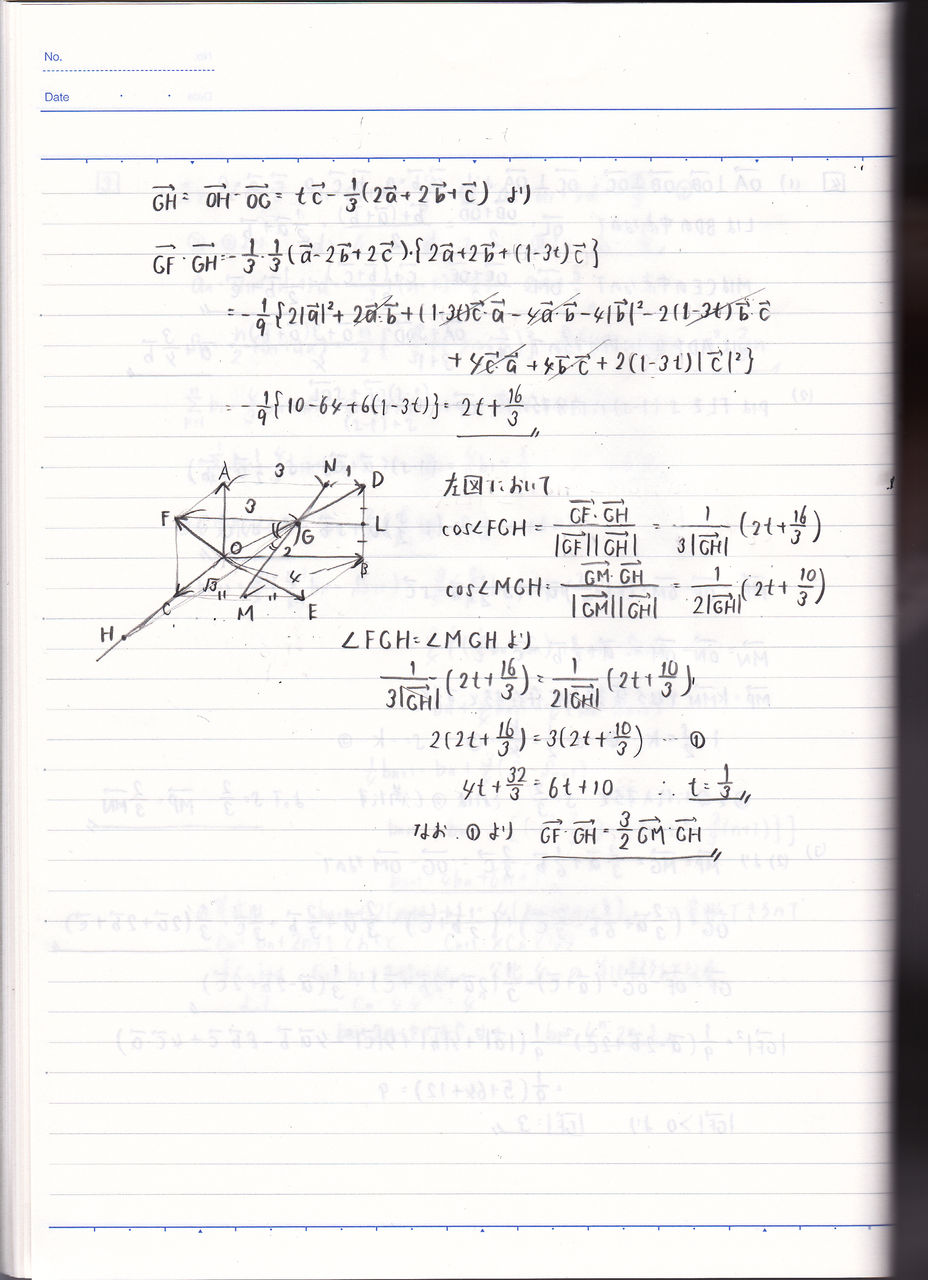 No.
Date
GH = OH - OG = tc - 1/3(2a + 2b + c) より
GF・GH = -1/3・1/3(a - 2b + 2c)・{2a + 2b + (1-3t)c}
= -1/9{2|a|² + 2a・b + (1-3t)c・a - 4a・b - 4|b|² - 2(1-3t)b・c
+ 4c・a + 4b・c + 2(1-3t)|c|²}
= -1/9{10 - 64 + 6(1-3t)} = 2t + 16/3
A 3 N 1 D
F 3 G L
O 2 B
C √3 M 4 E
H
左図において
cos∠FGH = GF・GH/|GF||GH| = 1/3|GH| (2t + 16/3)
cos∠MGH = GM・GH/|GM||GH| = 1/2|GH| (2t + 10/3)
∠FGH = ∠MGH より
1/3|GH| (2t + 16/3) = 1/2|GH| (2t + 10/3)
2(2t + 16/3) = 3(2t + 10/3) ①
4t + 32/3 = 6t + 10 ∴ t = 1/3
なお、①より GF・GH = 3/2 GM・GH